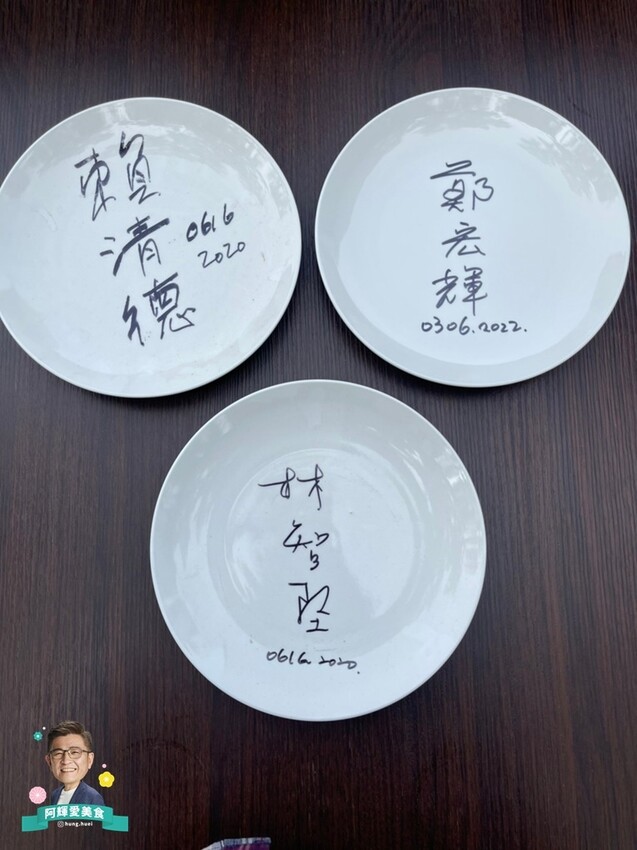 賴清德
0616
2020
鄭宏輝
0306.2022.
林智坚
0616.2020.
阿輝愛美食
hung.huei